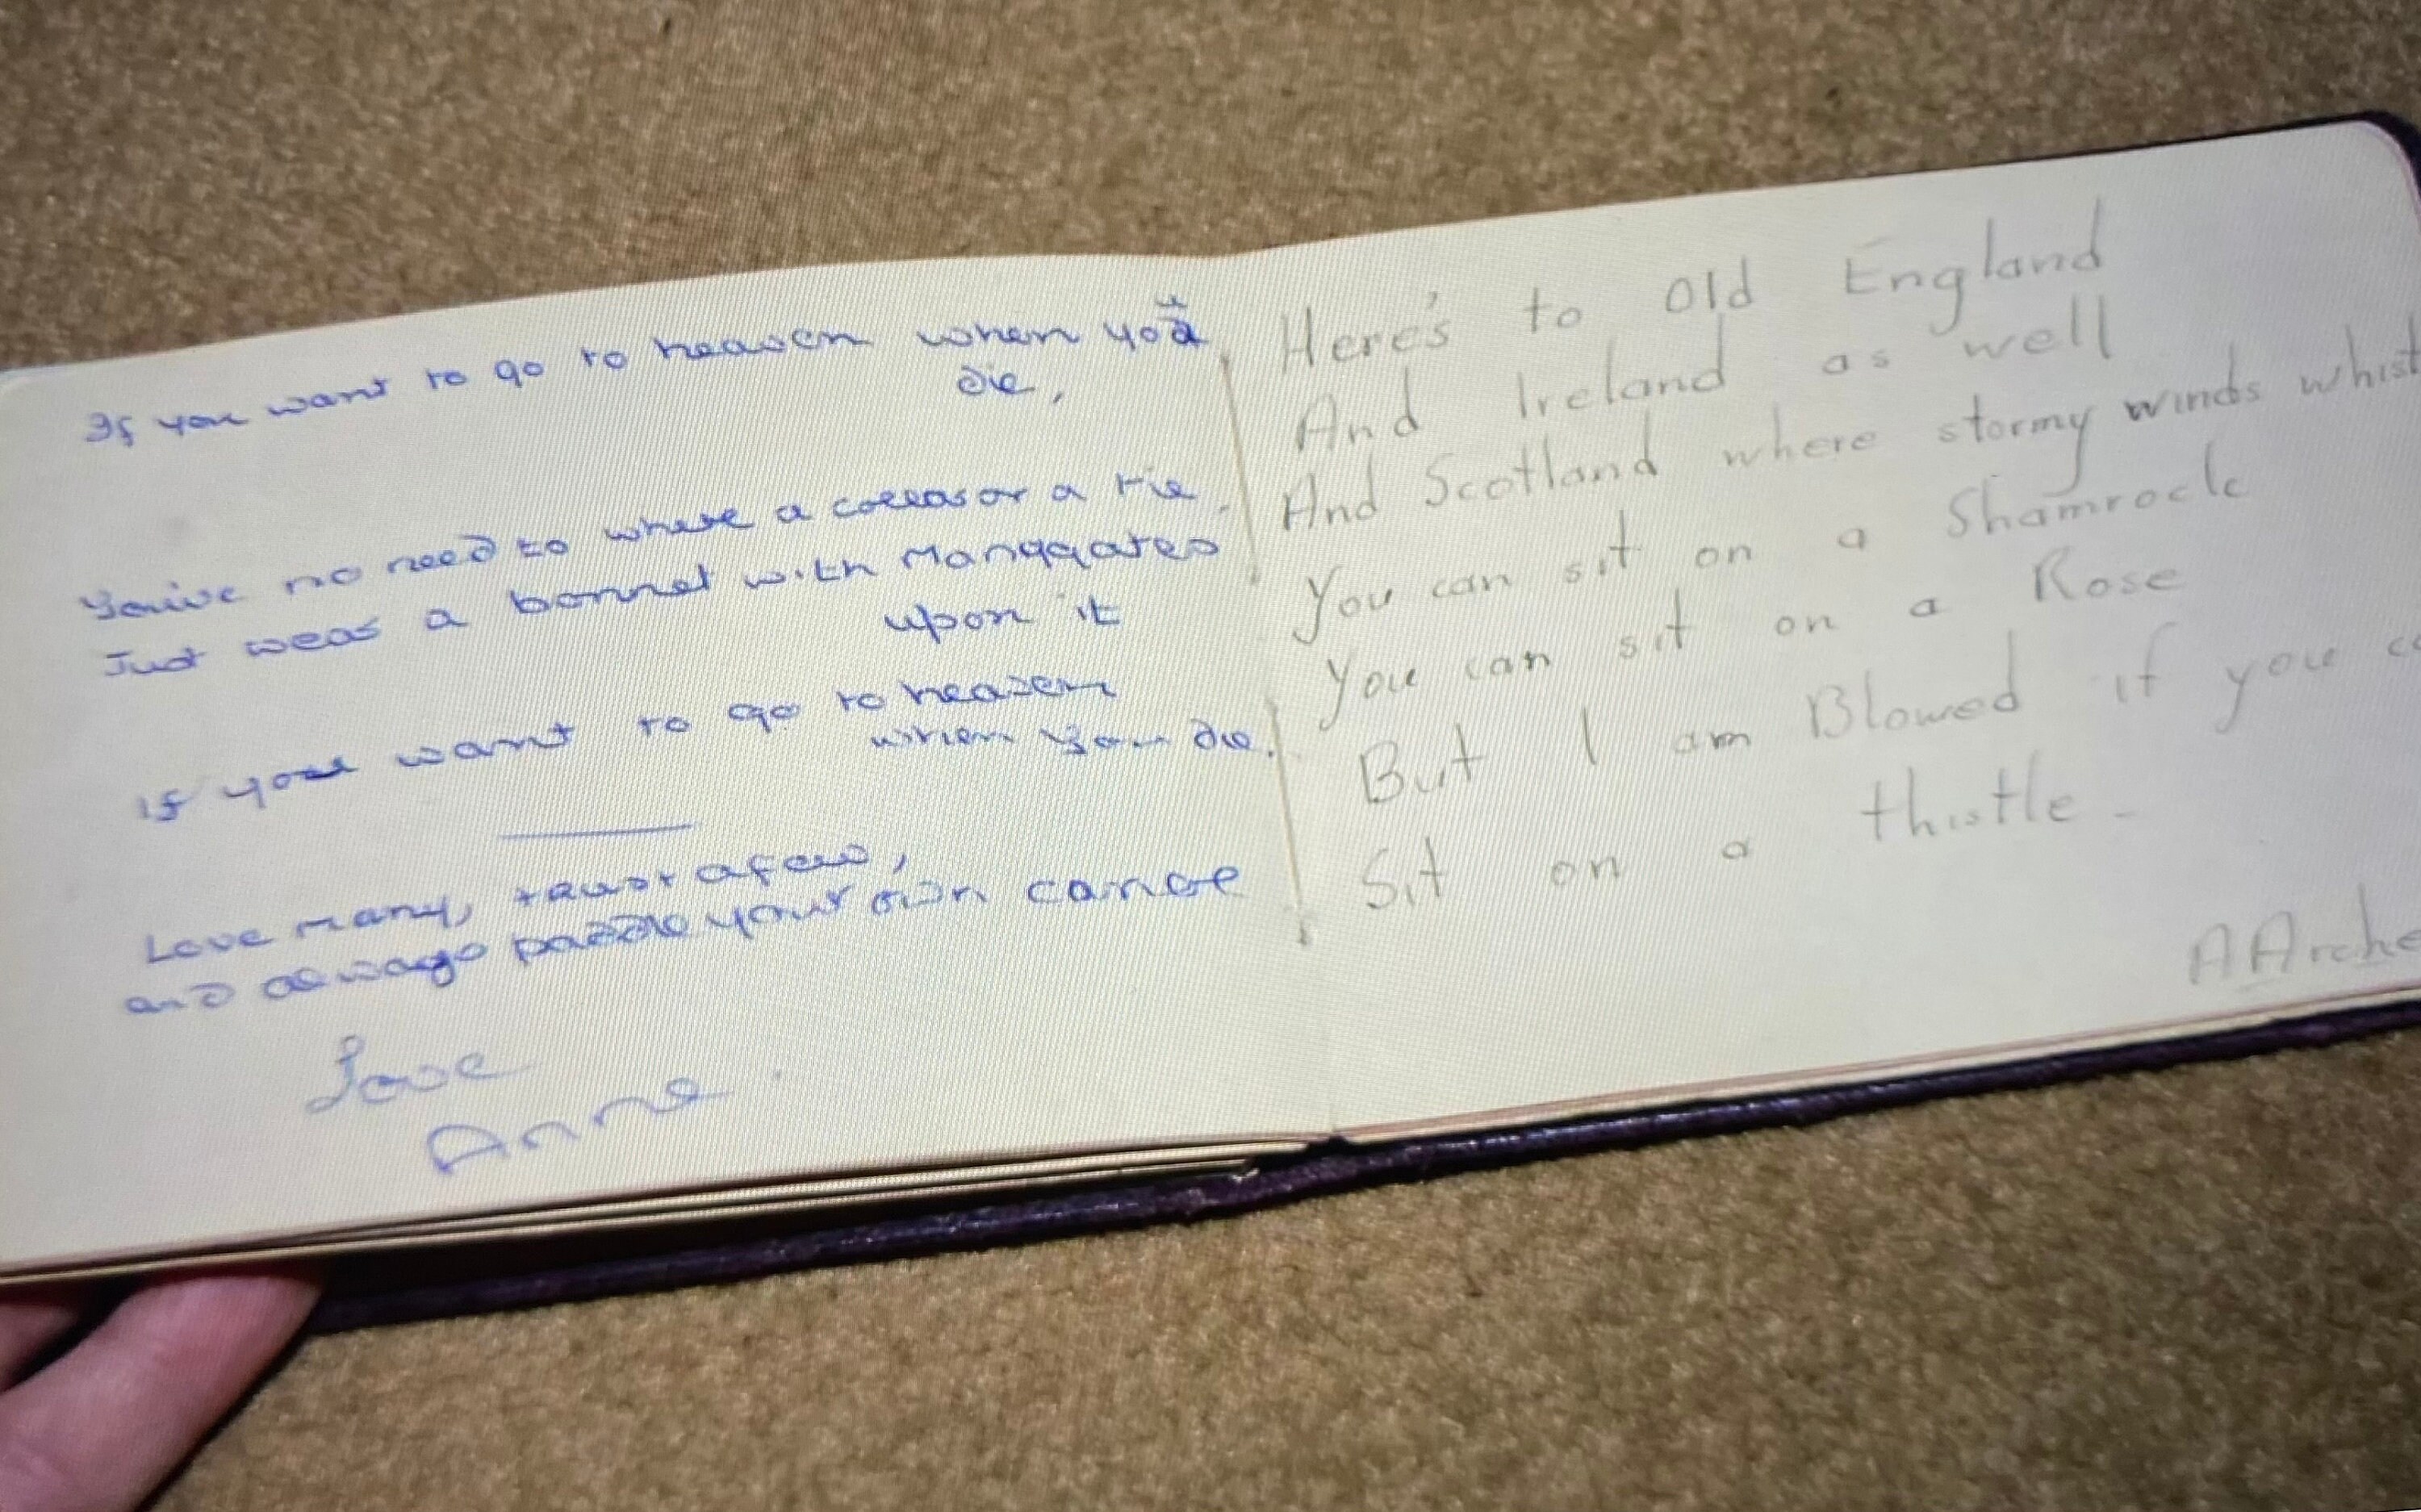 If you want to go to heaven when you
die,
You've no need to where a collar or a tie.
Just wear a bonnet with
upon it
If you want to go to heaven
when you die.
Love many, trust a few,
and always paddle your own canoe
Love
Anne.
Here's to old England
And Ireland as well
And Scotland where stormy winds whist
You can sit on a Shamrock
You can sit on a Rose
But I am Blowed if you c
Sit on a thistle -
A Arche